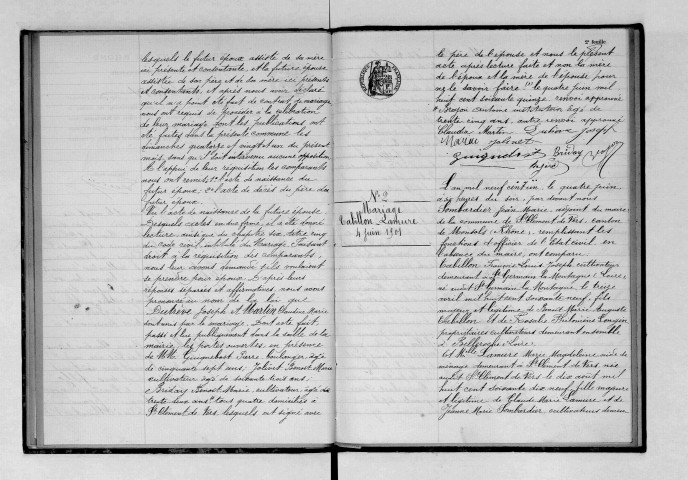 lesquels le futur époux assisté de sa mère
ici présente et consentante, et la future épouse
assistée de son père et de sa mère ici présents
et consentants, et après nous avoir déclaré
qu'il n'a point été fait de contrat de mariage
nous ont requis de procéder à la célébration
de leur mariage dont les publications ont
été faites dans la présente commune les
dimanches quatorze et vingt et un du présent
mois, sans qu'il soit intervenu aucune opposition
A l'appui de leur réquisition les comparants
nous ont remis: 1° l'acte de naissance du
futur époux 2° l'acte de décès du père du
futur époux
Vu l'acte de naissance de la future épouse
Desquels actes en due forme, il a été donné
lecture ainsi que du chapitre six titre cinq
du code civil intitulé du Mariage. Faisant
droit à la réquisition des comparants,
nous leur avons demandé s'ils voulaient
se prendre pour époux. D'après leurs
réponses séparées et affirmatives, nous avons
prononcé au nom de la loi que
Joseph et Martin Claudine Marie
sont unis par le mariage. Dont acte fait,
passé et lu publiquement dans la salle de la
mairie, les portes ouvertes, en présence
de MM. Pierre boulanger âgé de
cinquante sept ans, Benoit Marie
cultivateur âgé de soixante trois ans,
Benoit Marie cultivateur âgé de
trente deux ans, tous quatre domiciliés à
St Clément de Vers, lesquels ont signé avec
N° 2
Mariage
Cabillon Lamure
4 juin 1901
2e feuille
le père de l'épouse et nous le présent
acte après lecture faite et non la mère
de l'époux et la mère de l'épouse pour
ne le savoir faire. le quatre juin mil
huit cent soixante quinze renvoi approuvé
Antoine instituteur âgé de
trente cinq ans, autre renvoi approuvé
Claudia Martin Joseph
Marie
L'an mil neuf cent un le quatre juin
à heures du soir, par devant nous
Sombardier Jean Marie, adjoint du maire
de la commune de St Clément de Vers, canton
de Monsols (Rhône), remplissant les
fonctions d'officier de l'Etat civil en
l'absence du maire, ont comparu
Cabillon François Louis Joseph cultivateur
demeurant à St Germain la Montagne (Loire)
né à St Germain la Montagne, le treize
avril mil huit cent soixante neuf, fils
majeur et légitime de Benoit Marie Auguste
Cabillon et de
propriétaires cultivateurs demeurant ensemble
à Belleroche Loire,
et Mlle Lamure Marie Magdeleine aide de
ménage demeurant à St Clément de Vers, née
à St Clément de Vers le dix août mil
huit cent soixante dix neuf, fille majeure
et légitime de Claude Marie Lamure et de
Jeanne Marie Sombardier cultivateurs demeu